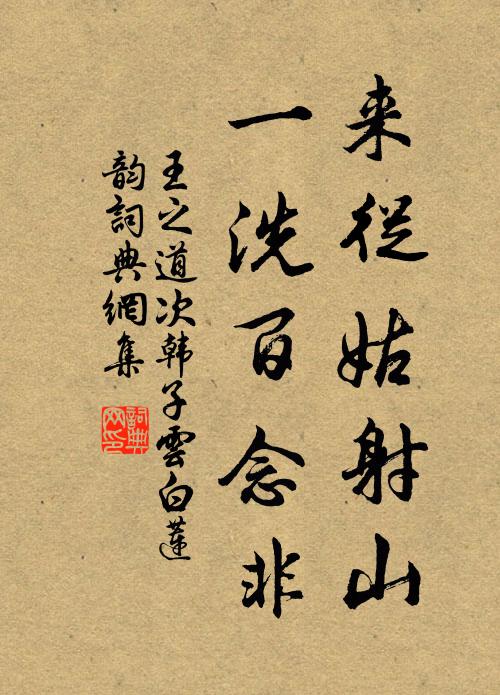 来從姑射山
一洗百念非
王之道次韩子雲白蓮
韵詞典網集
詞典网印